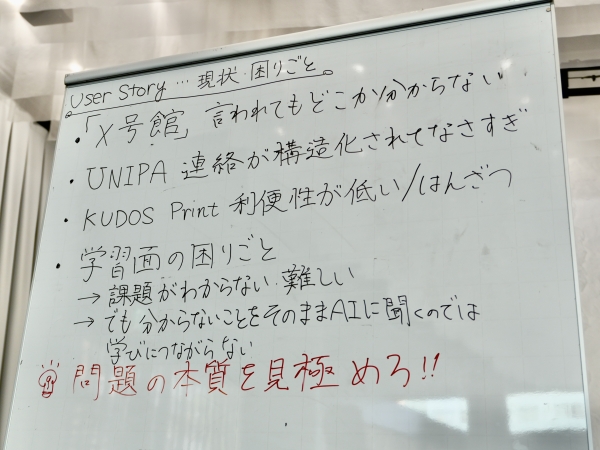 User Story … 現状・困りごと。
・「X号館」言われてもどこか分からない
・UNIPA 連絡が構造化されてなさすぎ
・KUDOS Print 利便性が低い/はんざつ
・学習面の困りごと
→ 課題がわからない・難しい
→ でも分からないことをそのままAIに聞くのでは
学びにつながらない
問題の本質を見極めろ!!